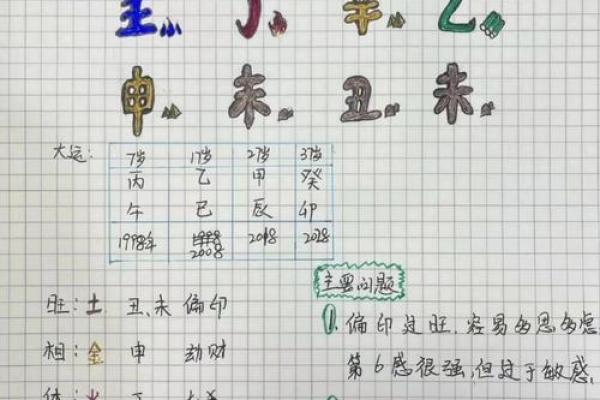 壬 丁 辛 乙
申 未 丑 未
大运: 7岁 17岁 27岁 37岁
丙 乙 甲 癸
午 巳 辰 卯
1998年 2008 2018 2028
旺: 土 丑、未 偏印
相: 金 申 劫财
主要问题
1. 偏印过旺, 容易多思多虑
第6感很强, 但过于敏感,